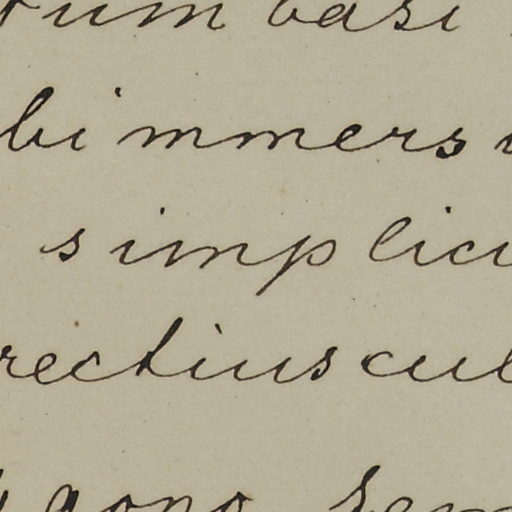 tum basi
bi immersi
simplici
rectiuscul
gono sem